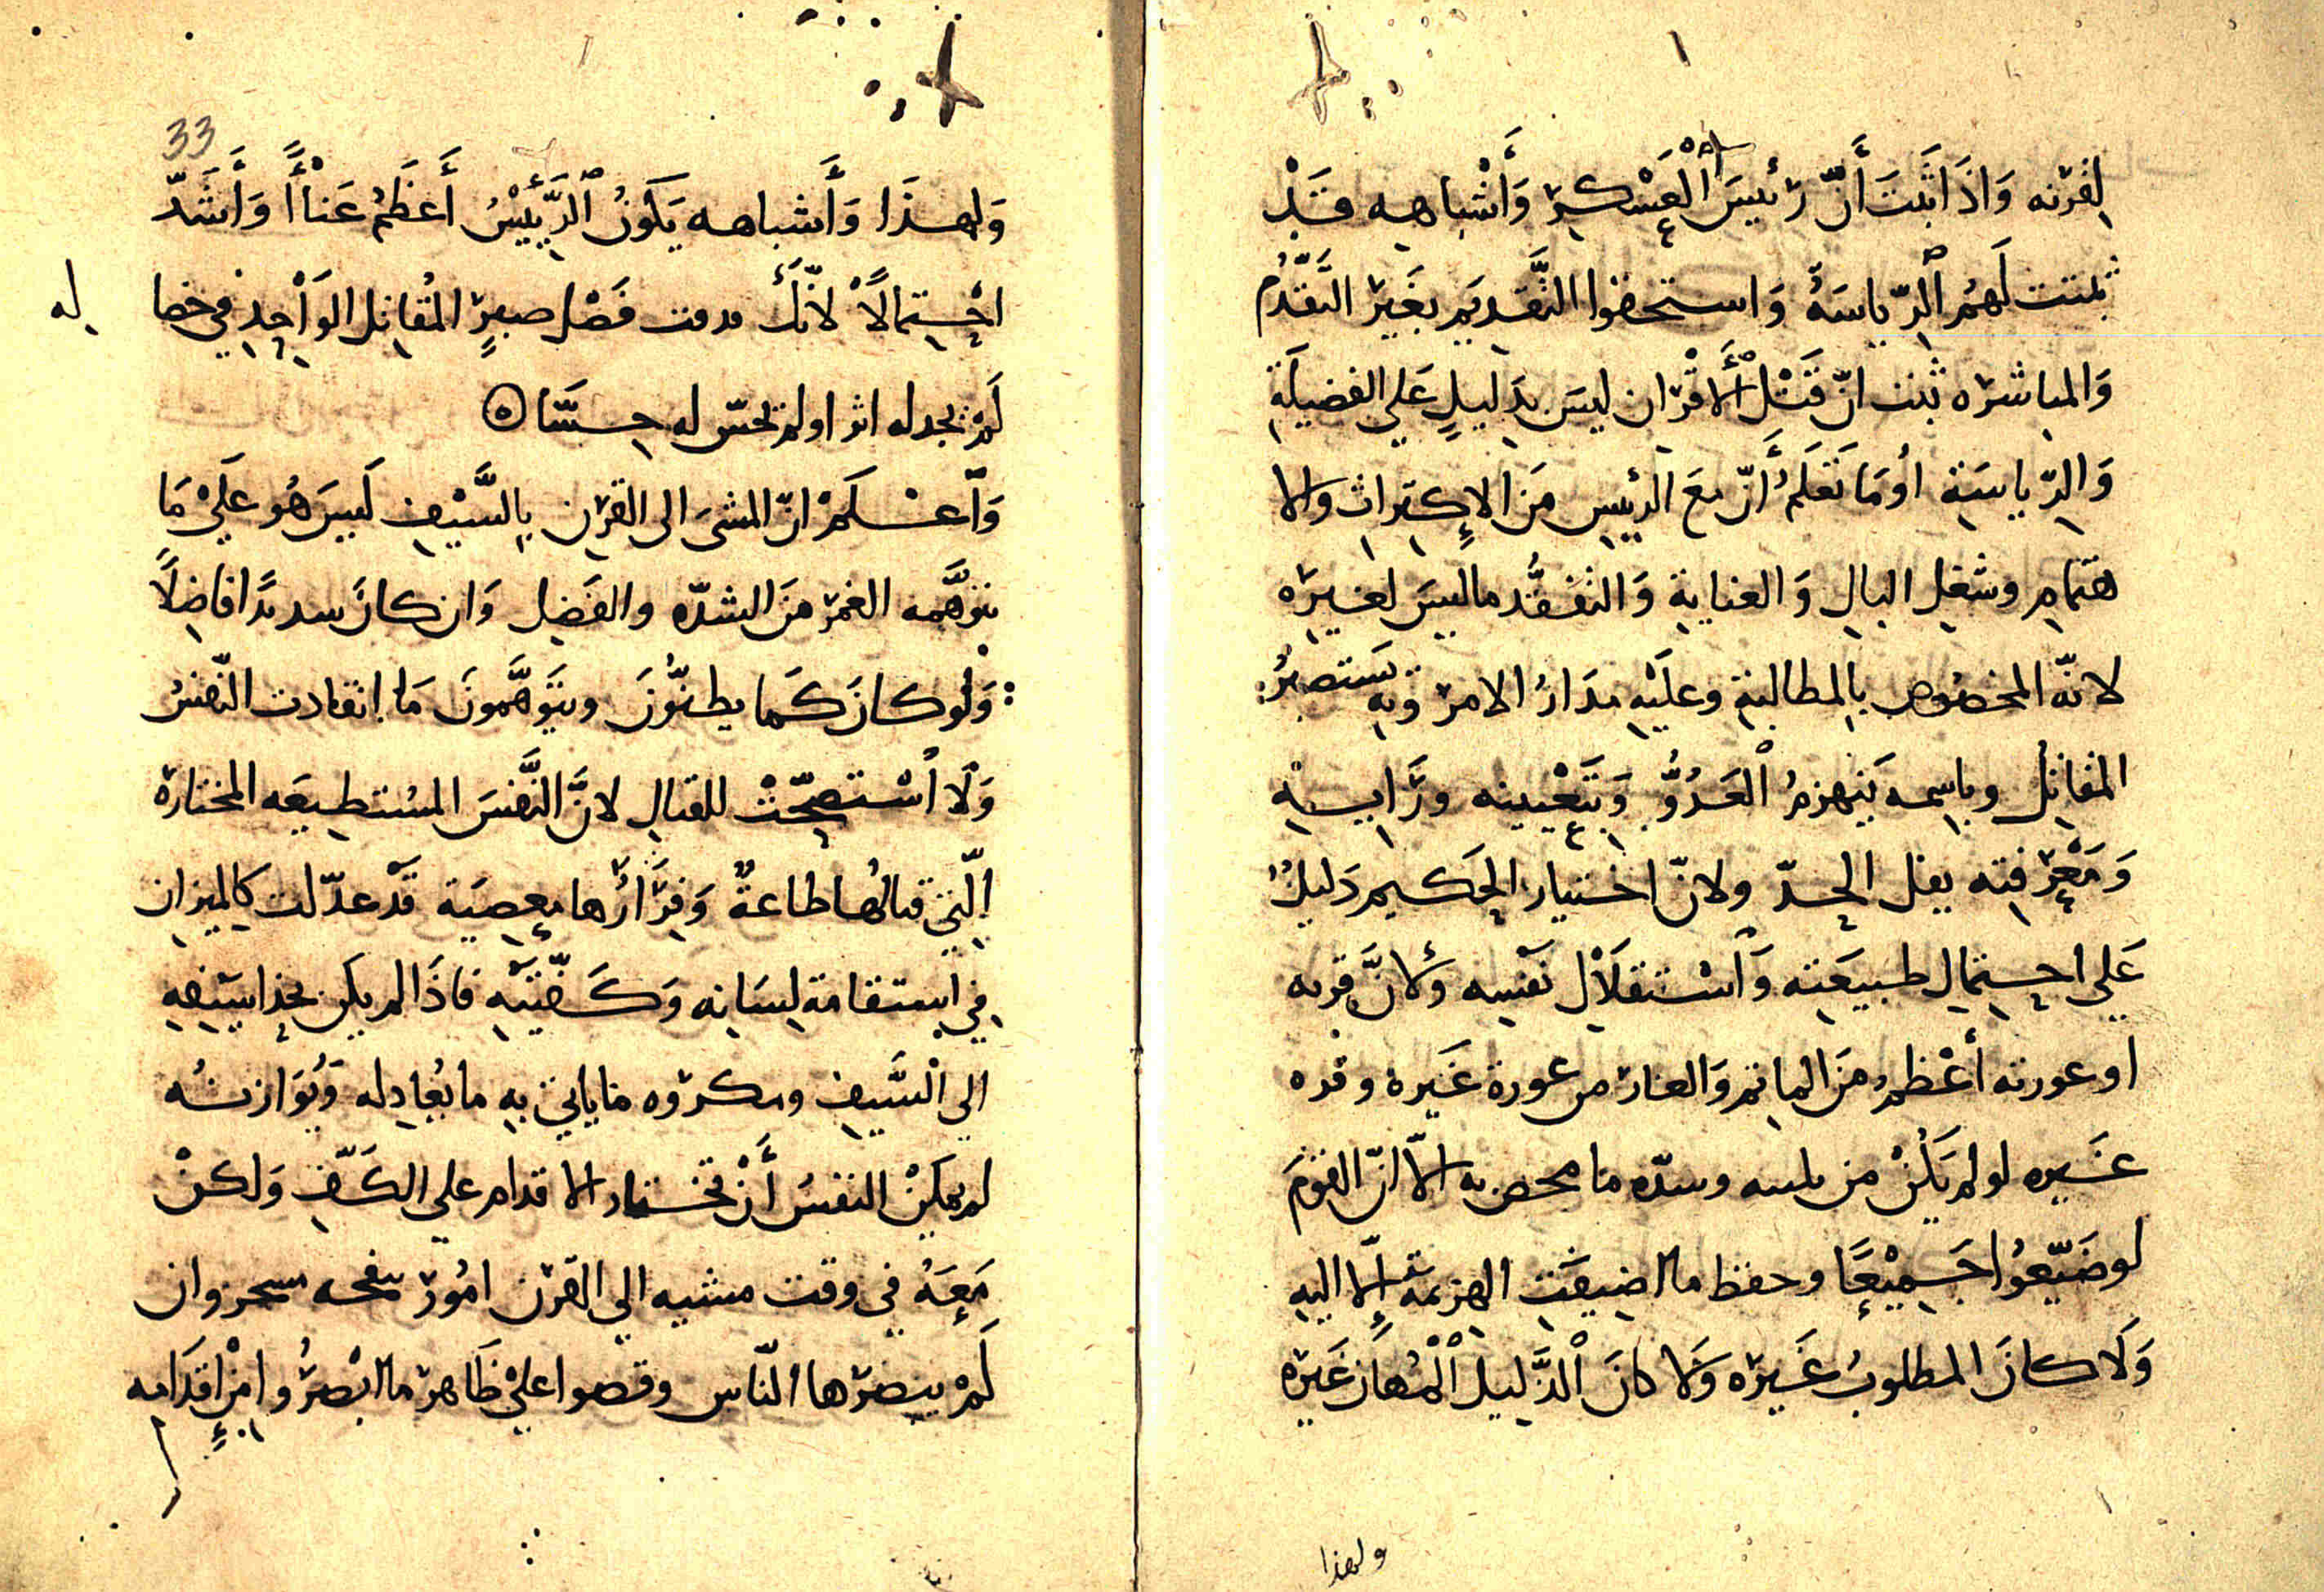 لقرنه وَاذَا ثَبَتَ أَنّ رئيسَ الْعَسْكرِ وَأَشْباهِه قَدْ
ثبتت لَهُم الرّياسَةُ وَاستحقوا التَّقديَم بغَير التَّقَدُّم
وَالمباشره ثبت انّ قَتْلَ الأَقْران ليسَ بدَليلٍ عَلي الفضيلَةِ
وَالرّياسَةِ اوَمَا تَعلَمُ أَنّ معَ الرئيسِ مَن الإكتِراثِ والا
هتمامِ وشغلِ البالِ وَالعنايةِ وَالتفَقُّد ماليسَ لغيرِه
لانّه المخصُوص بالمطالبةِ وعليْهِ مدَارُ الامر وَبِهِ يَستَبصِرُ
المقاتِل وباسِمه يَنهزمُ الْعَدُوُّ وَبتَعْبِيته ورَايسته
وَمَعْرفتِه يفل الحدّ ولانّ اختيارِ الحَكيم دَليلٌ
عَلي احتِمالِ طبيعَتِه وَاسْتقلَالِ نَفْسِه وَلانَّ فره
او عورته أَعْظمُ مَن الماثم وَالعار من عورة غَيره وفره
غَيره لو لم يَكُنْ من بليه وسدّه ما يحص به الاّ انّ القوْمَ
لو ضَيّعُوا جَمِيْعًا وحفظ ما اضيفَتِ الهزيمَة إلّا اليهِ
وَلَا كانَ المطلوبُ غَيره وَلا كانَ الْذَّليل الْمُهان غَيره
ولهذا
33
وَلهذَا وَأَشباهه يَكونُ الرَّئِيْسُ أَعظَمُ عَنْاءً وَأَشَدّ
احْتِمَالًا لانّك مدمت فَضْل صبرٍ المُقاتِل الوَاحِدِ في خصا
له
لَمْ تجد له اثرا ولم تحسّ له حِسًّا ه
وَاعْلَمْ انّ المشىَ الى القرنِ بِالسَّيْفِ لَيسَ هُو عَليْ مَا
يتوَهَّمه الغمر منَ الشدّه والفَضلِ وَان كانَ سديدًا فاضِلًا
وَلْو كانَ كَما يظنّونَ ويتَوَهَّمونَ مَا انقادت النّفسُ
وَلَا اسْتصحّتْ للقتالِ لانَّ النَّفسَ المسُتطيعَه المختارة
الّتي قتالُها طاعةٌ وَفِرَارُها معصِيَة قَدْ عدّلت كالميزان
فِي استقامةِ لِسَانه وَكَفَّتَيْهِ فاذَا لم يكن بحِذا سَيفِهِ
الي الْسَّيفِ ومكروه ما ياتي بهِ ما يُعادِله وَيُوَازنُه
لم يمكِنْ النفسُ أَنْ تختار الاقدام علي الكَفِّ وَلكنْ
مَعَهُ في وقت مشيه الي القرن امُور بنفحه سحروان
لَمْ يبصرها النّاس وقصوا عليْ ظَاهر ما ابْصرُوا مِنْ اقدَامه